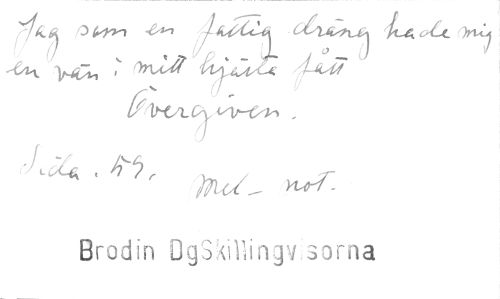 Jag som en fattig dräng hade mig
en vän i mitt hjärta fått
Övergiven.
Sida. 59.
mel - not.
Brodin DgSkillingvisorna